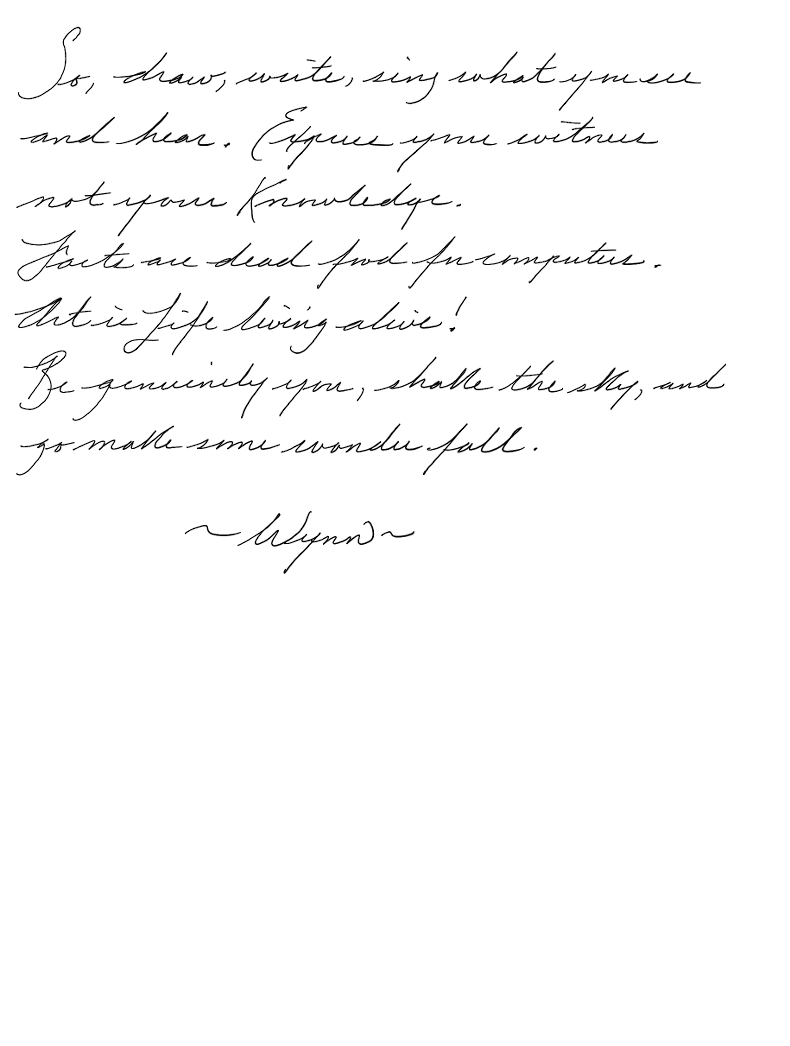 So, draw, write, sing what you see
and hear. Express your witness
not your Knowledge.
Facts are dead food for computers.
Art is Life living alive!
Be genuinely you, shake the sky, and
go make some wonder fall.
~Wynn~